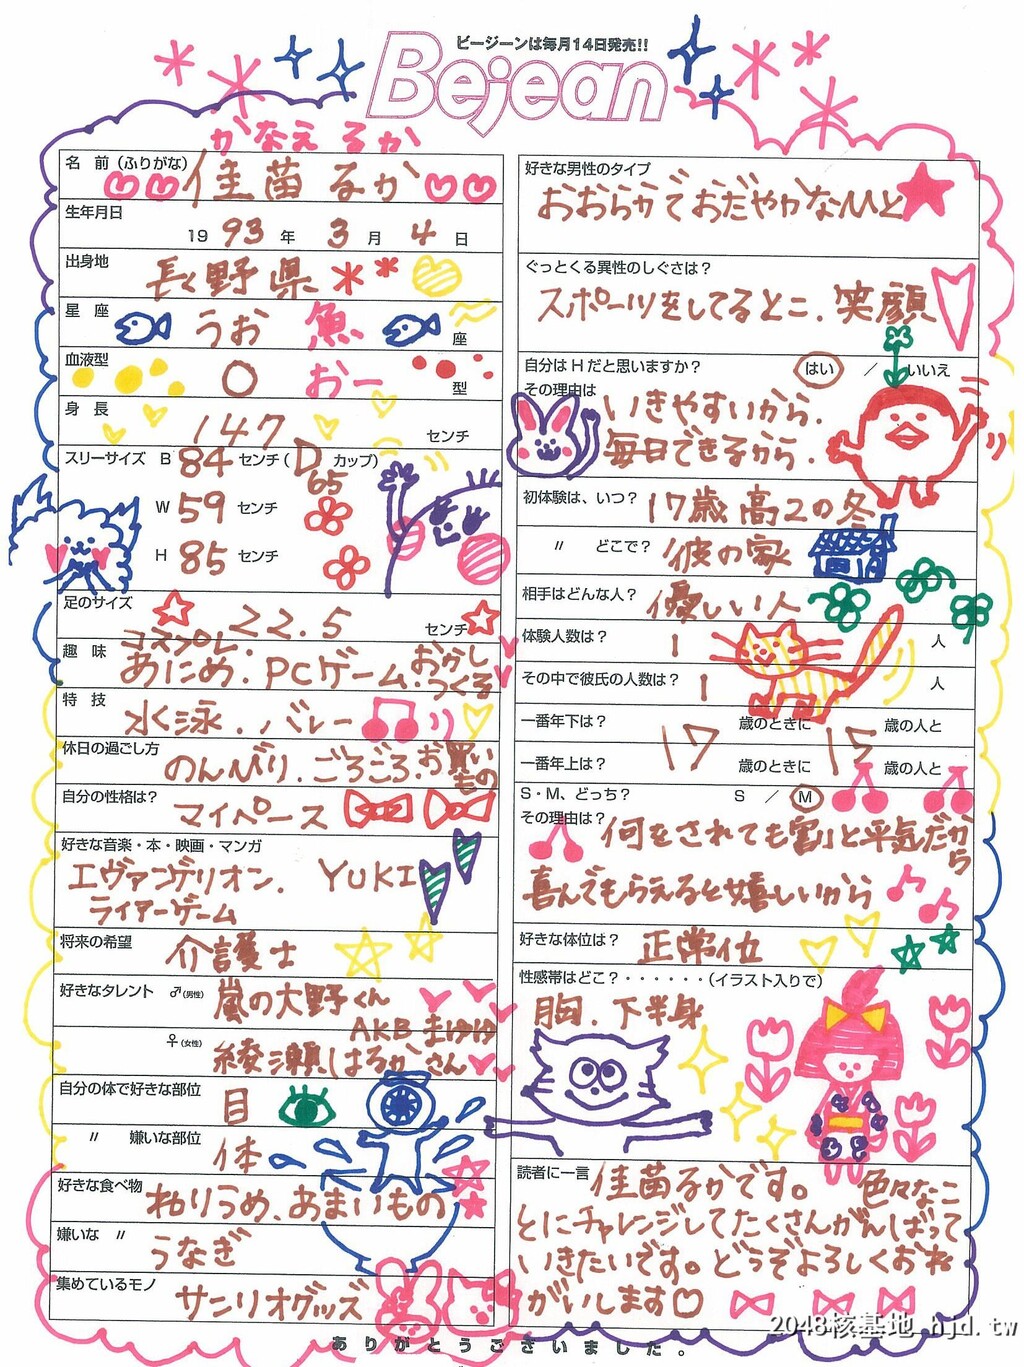 ビージーンは毎月14日発売!!
Bejean
かなえ るか
名 前（ふりがな） 佳苗るか
生年月日
19 93 年 3 月 4 日
出身地 長野県
星 座 うお 魚 座
血液型 O おー 型
身 長 147 センチ
スリーサイズ B 84 センチ（D カップ）
65
W 59 センチ
H 85 センチ
足のサイズ 22.5 センチ
コスプレ・
趣 味 あにめ・PCゲーム・おかしつくる
特 技 水泳・バレー
休日の過ごし方 のんびり・ごろごろ・お買いもの
自分の性格は？ マイペース
好きな音楽・本・映画・マンガ
エヴァンゲリオン. YUKI
ライアーゲーム
将来の希望 介護士
好きなタレント ♂(男性) 嵐の大野くん
AKB まゆゆ
♀(女性) 綾瀬はるかさん
自分の体で好きな部位 目
〃 嫌いな部位 体
好きな食べ物 ねりうめ、あまいもの
嫌いな 〃 うなぎ
集めているモノ サンリオグッズ
好きな男性のタイプ
おおらかでおだやかな人と
ぐっとくる異性のしぐさは？
スポーツをしてるとこ. 笑顔
自分はHだと思いますか？ はい ／ いいえ
その理由は いきやすいから.
毎日できるから.
S・M、どっち？ S ／ M
その理由は？ 何をされても割と平気だから
喜んでもらえると嬉しいから
好きな体位は？ 正常位
性感帯はどこ？・・・・・・（イラスト入りで）
胸. 下半身
読者に一言 佳苗るかです。 色々なこ
とにチャレンジしてたくさんがんばって
いきたいです。どうぞよろしくおね
がいします♡
ありがとうございました。
2048核基地_hjd.tw